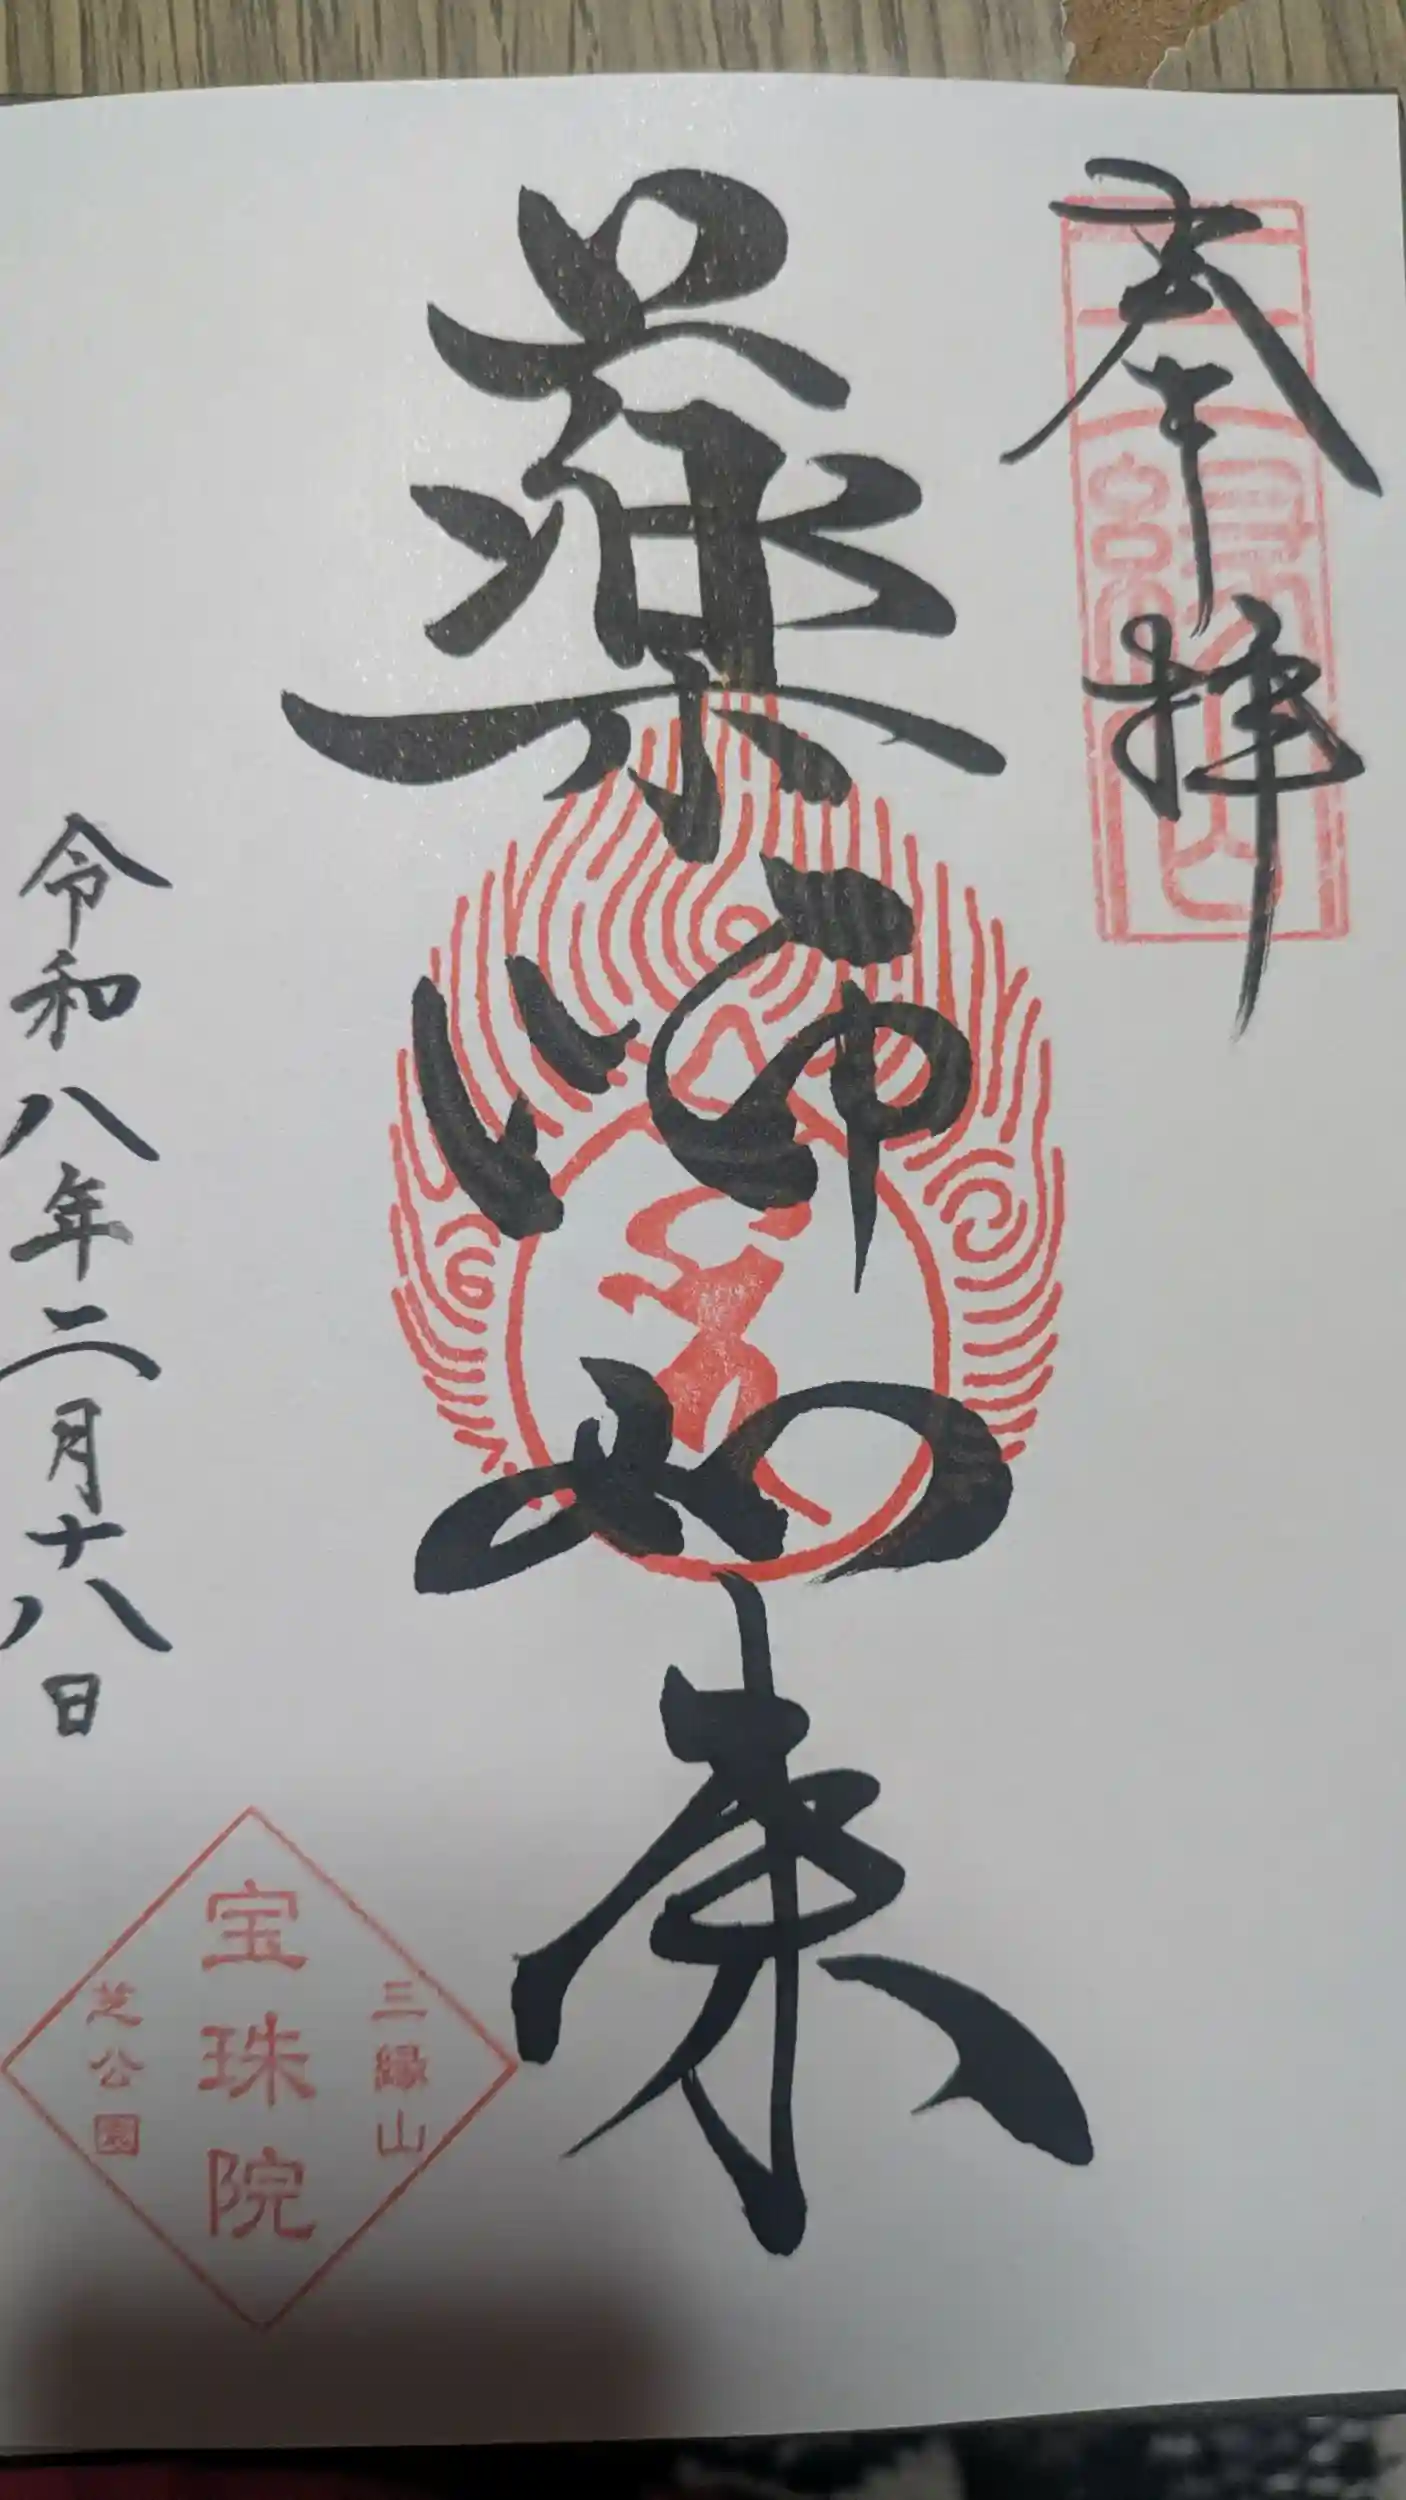 奉拝
三縁山
薬師如来
令和八年二月十八日
三縁山
宝珠院
芝公園